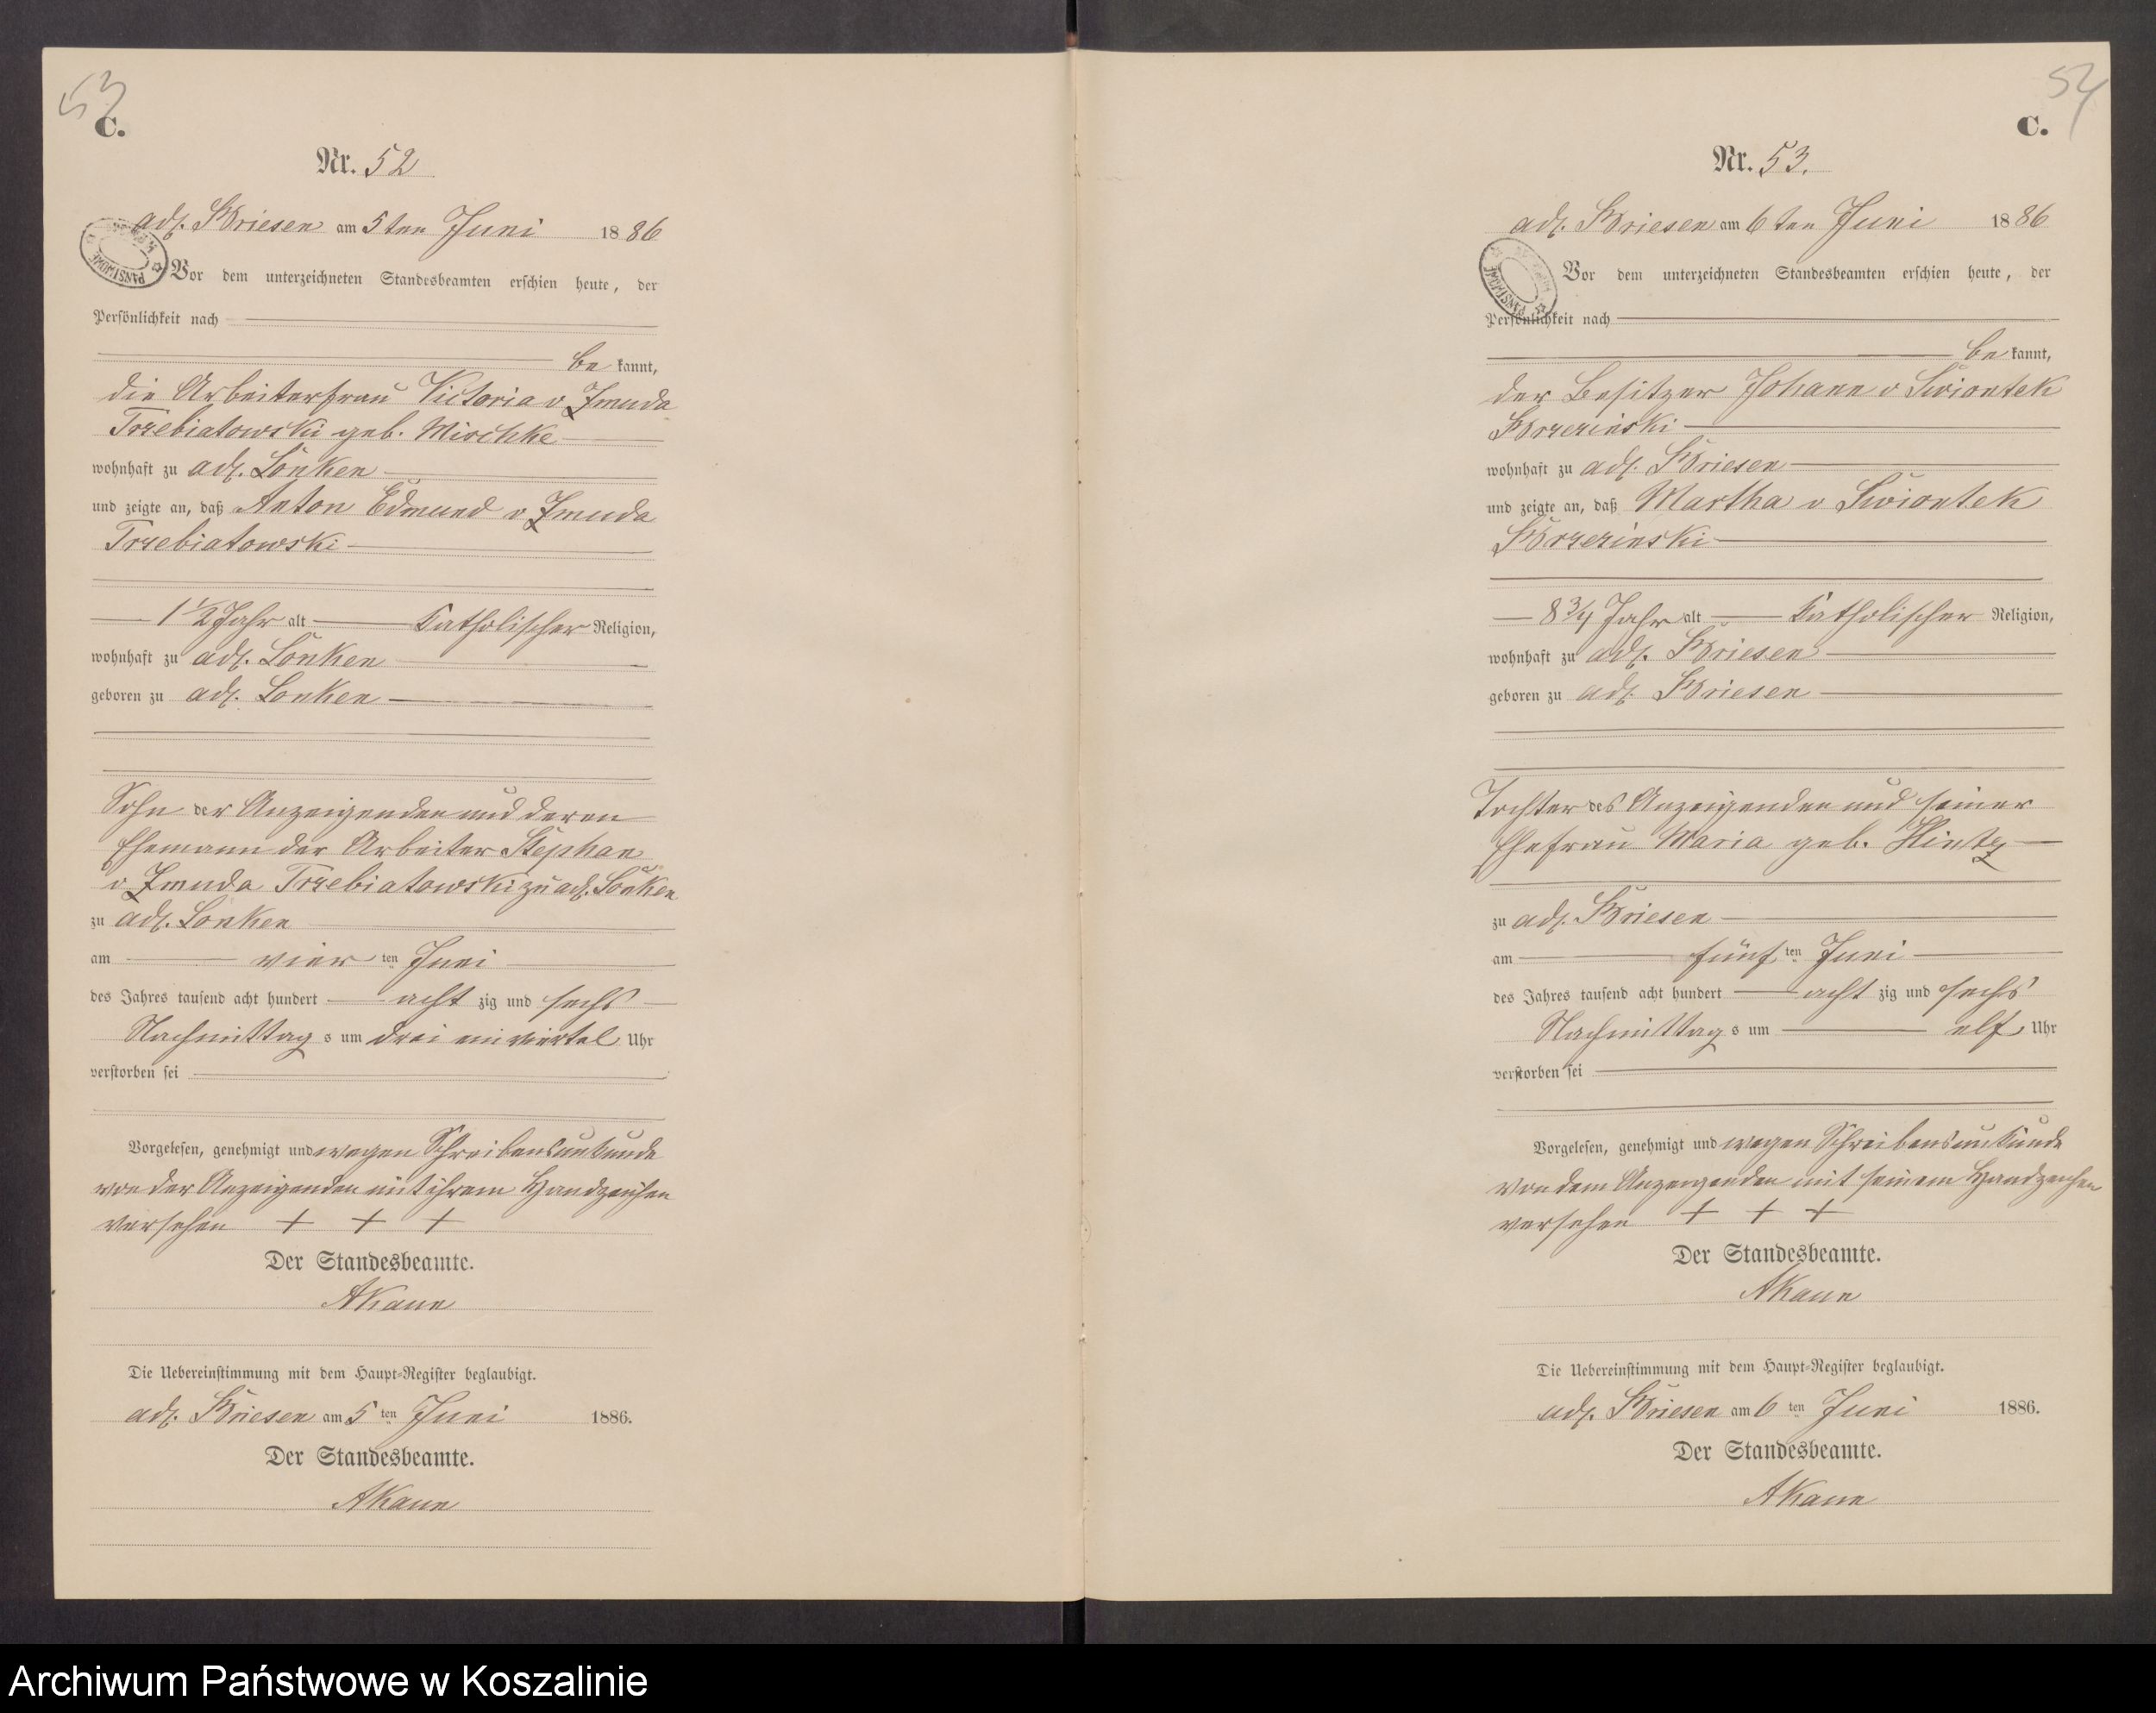 53
C.
Nr. 52
adl. Briesen am 5ten Juni 1886
Vor dem unterzeichneten Standesbeamten erschien heute, der
Persönlichkeit nach
be kannt,
die Arbeiterfrau Victoria v Zmuda
Trzebiatowski geb. Mischke
wohnhaft zu adl. Lonken
und zeigte an, daß Anton Edmund v Zmuda
Trzebiatowski
1 1/2 Jahr alt Katholischer Religion,
wohnhaft zu adl. Lonken
geboren zu adl. Lonken
Sohn der Anzeigenden und deren
Ehemann der Arbeiter Stephan
v Zmuda Trzebiatowski zu adl. Lonken
zu adl. Lonken
am vier ten Juni
des Jahres tausend acht hundert acht zig und sechs
Nachmittag s um drei ein viertel Uhr
verstorben sei
Vorgelesen, genehmigt und wegen Schreibensunkunde
von der Anzeigenden mit ihrem Handzeichen
versehen + + +
Der Standesbeamte.
Die Uebereinstimmung mit dem Haupt-Register beglaubigt.
adl. Briesen am 5 ten Juni 1886.
Der Standesbeamte.
PAŃSTWOWE
54
C.
Nr. 53.
adl. Briesen am 6 ten Juni 1886
Vor dem unterzeichneten Standesbeamten erschien heute, der
Persönlichkeit nach
be kannt,
der Besitzer Johann v Swiontek
Brzezinski
wohnhaft zu adl. Briesen
und zeigte an, daß Martha v Swiontek
Brzezinski
8 3/4 Jahr alt Katholischer Religion,
wohnhaft zu adl. Briesen
geboren zu adl. Briesen
Tochter des Anzeigenden und seiner
Ehefrau Maria geb. Hintz
zu adl. Briesen
am fünf ten Juni
des Jahres tausend acht hundert acht zig und sechs
Nachmittag s um elf Uhr
verstorben sei
Vorgelesen, genehmigt und wegen Schreibensunkunde
von dem Anzeigenden mit seinem Handzeichen
versehen + + +
Der Standesbeamte.
Die Uebereinstimmung mit dem Haupt-Register beglaubigt.
adl. Briesen am 6 ten Juni 1886.
Der Standesbeamte.
PAŃSTWOWE
Archiwum Państwowe w Koszalinie